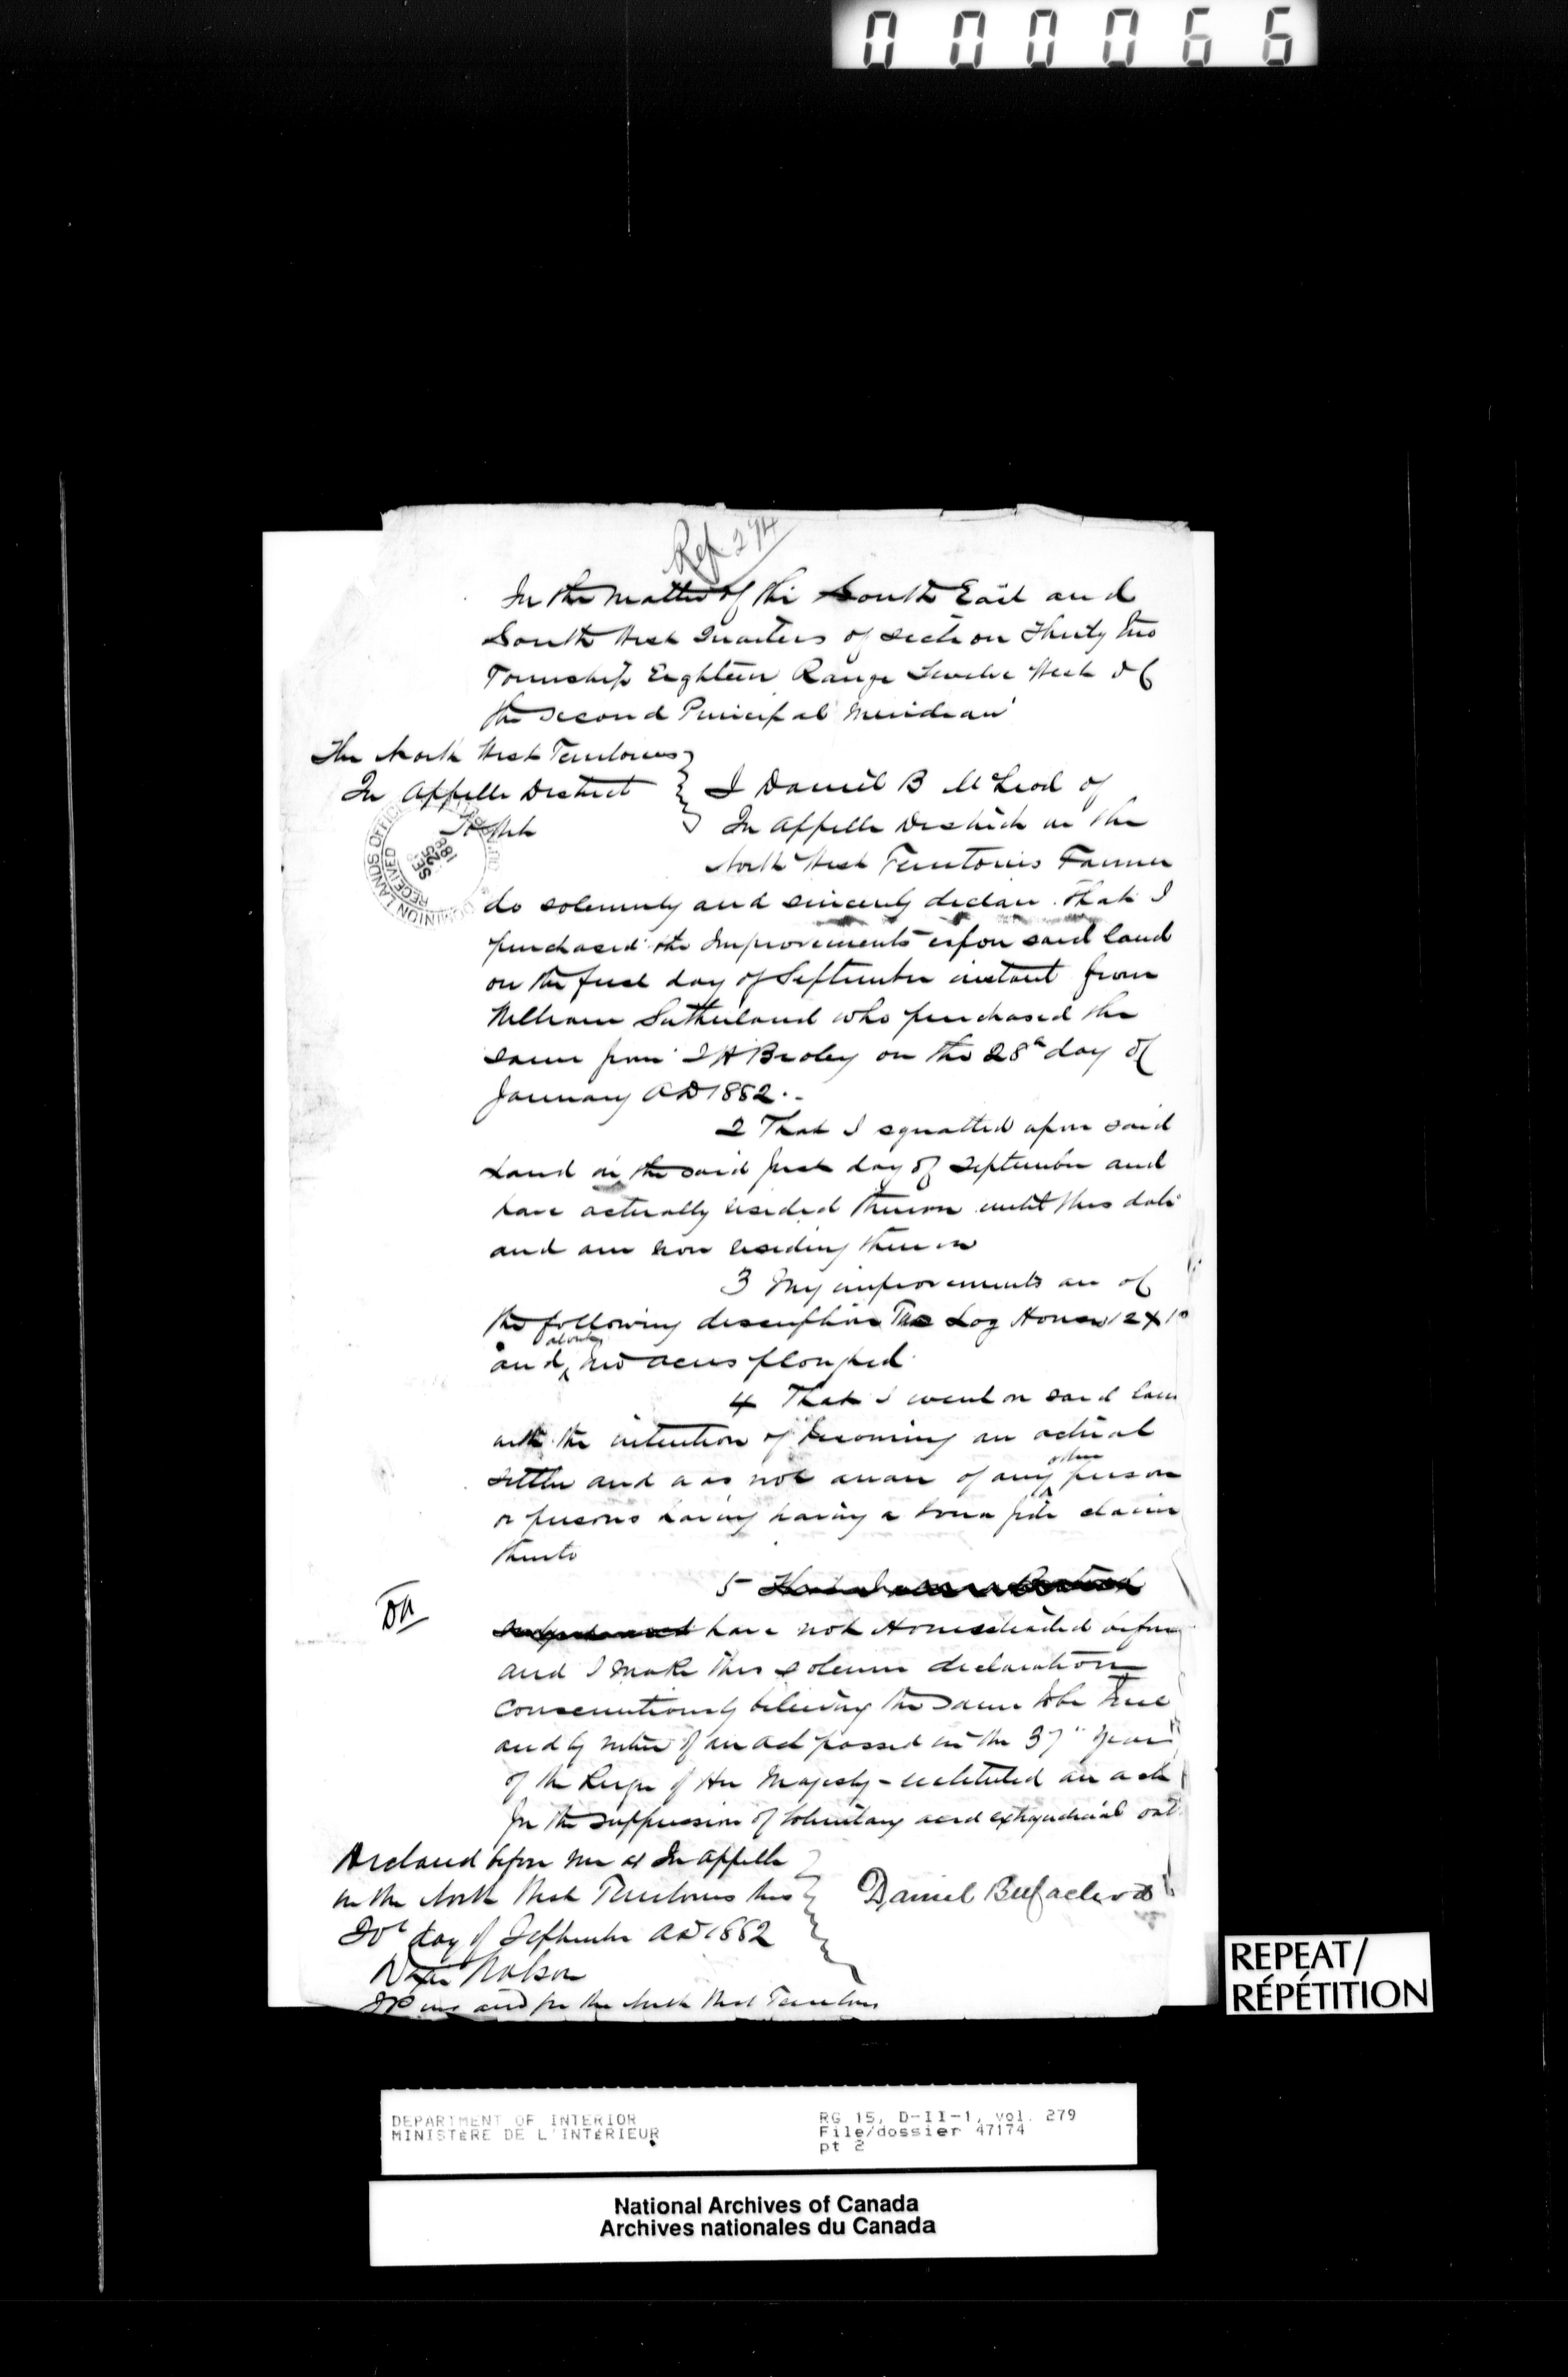 000066
Ref 294
In the matter of the South East and
South West Quarters of Section Thirty two
Township Eighteen Range Twelve West of
the Second Principal Meridian
The North West Territories
Qu Appelle District
To Wit
I Daniel B McLeod of
Qu Appelle District in the
North West Territories Farmer
DOMINION LANDS OFFICE
RECEIVED
SE 25
188
do solemnly and sincerely declare that I
purchased the Improvements upon said land
on the first day of September instant from
William Sutherland who purchased the
same from Broley on the 28th day of
January AD 1882.-
2 That I squatted upon said
Land on the said first day of September and
have actually resided thereon until this date
and am now residing thereon
3 My improvements are of
the following description Two Log Houses 12 x 10
and about two acres ploughed
4 That I went on said lan
with the intention of becoming an actual
settler and was not aware of any other person
or persons having having a bona fide claim
thereto
5
DM
have not Homesteaded before
and I make this solemn declaration
conscientiously believing the same to be true
and by virtue of an act passed in the 37th year
of the Reign of Her Majesty - entituled an act
for the suppression of voluntary and extrajudicial oat
Declared before me at Qu Appelle
in the North West Territories this
20th day of September AD 1882
Daniel B McLeod
JP in and for the North West Territories
REPEAT/
RÉPÉTITION
DEPARTMENT OF INTERIOR
MINISTÈRE DE L'INTÉRIEUR
RG 15, D-II-1, vol. 279
File/dossier 47174
pt 2
National Archives of Canada
Archives nationales du Canada